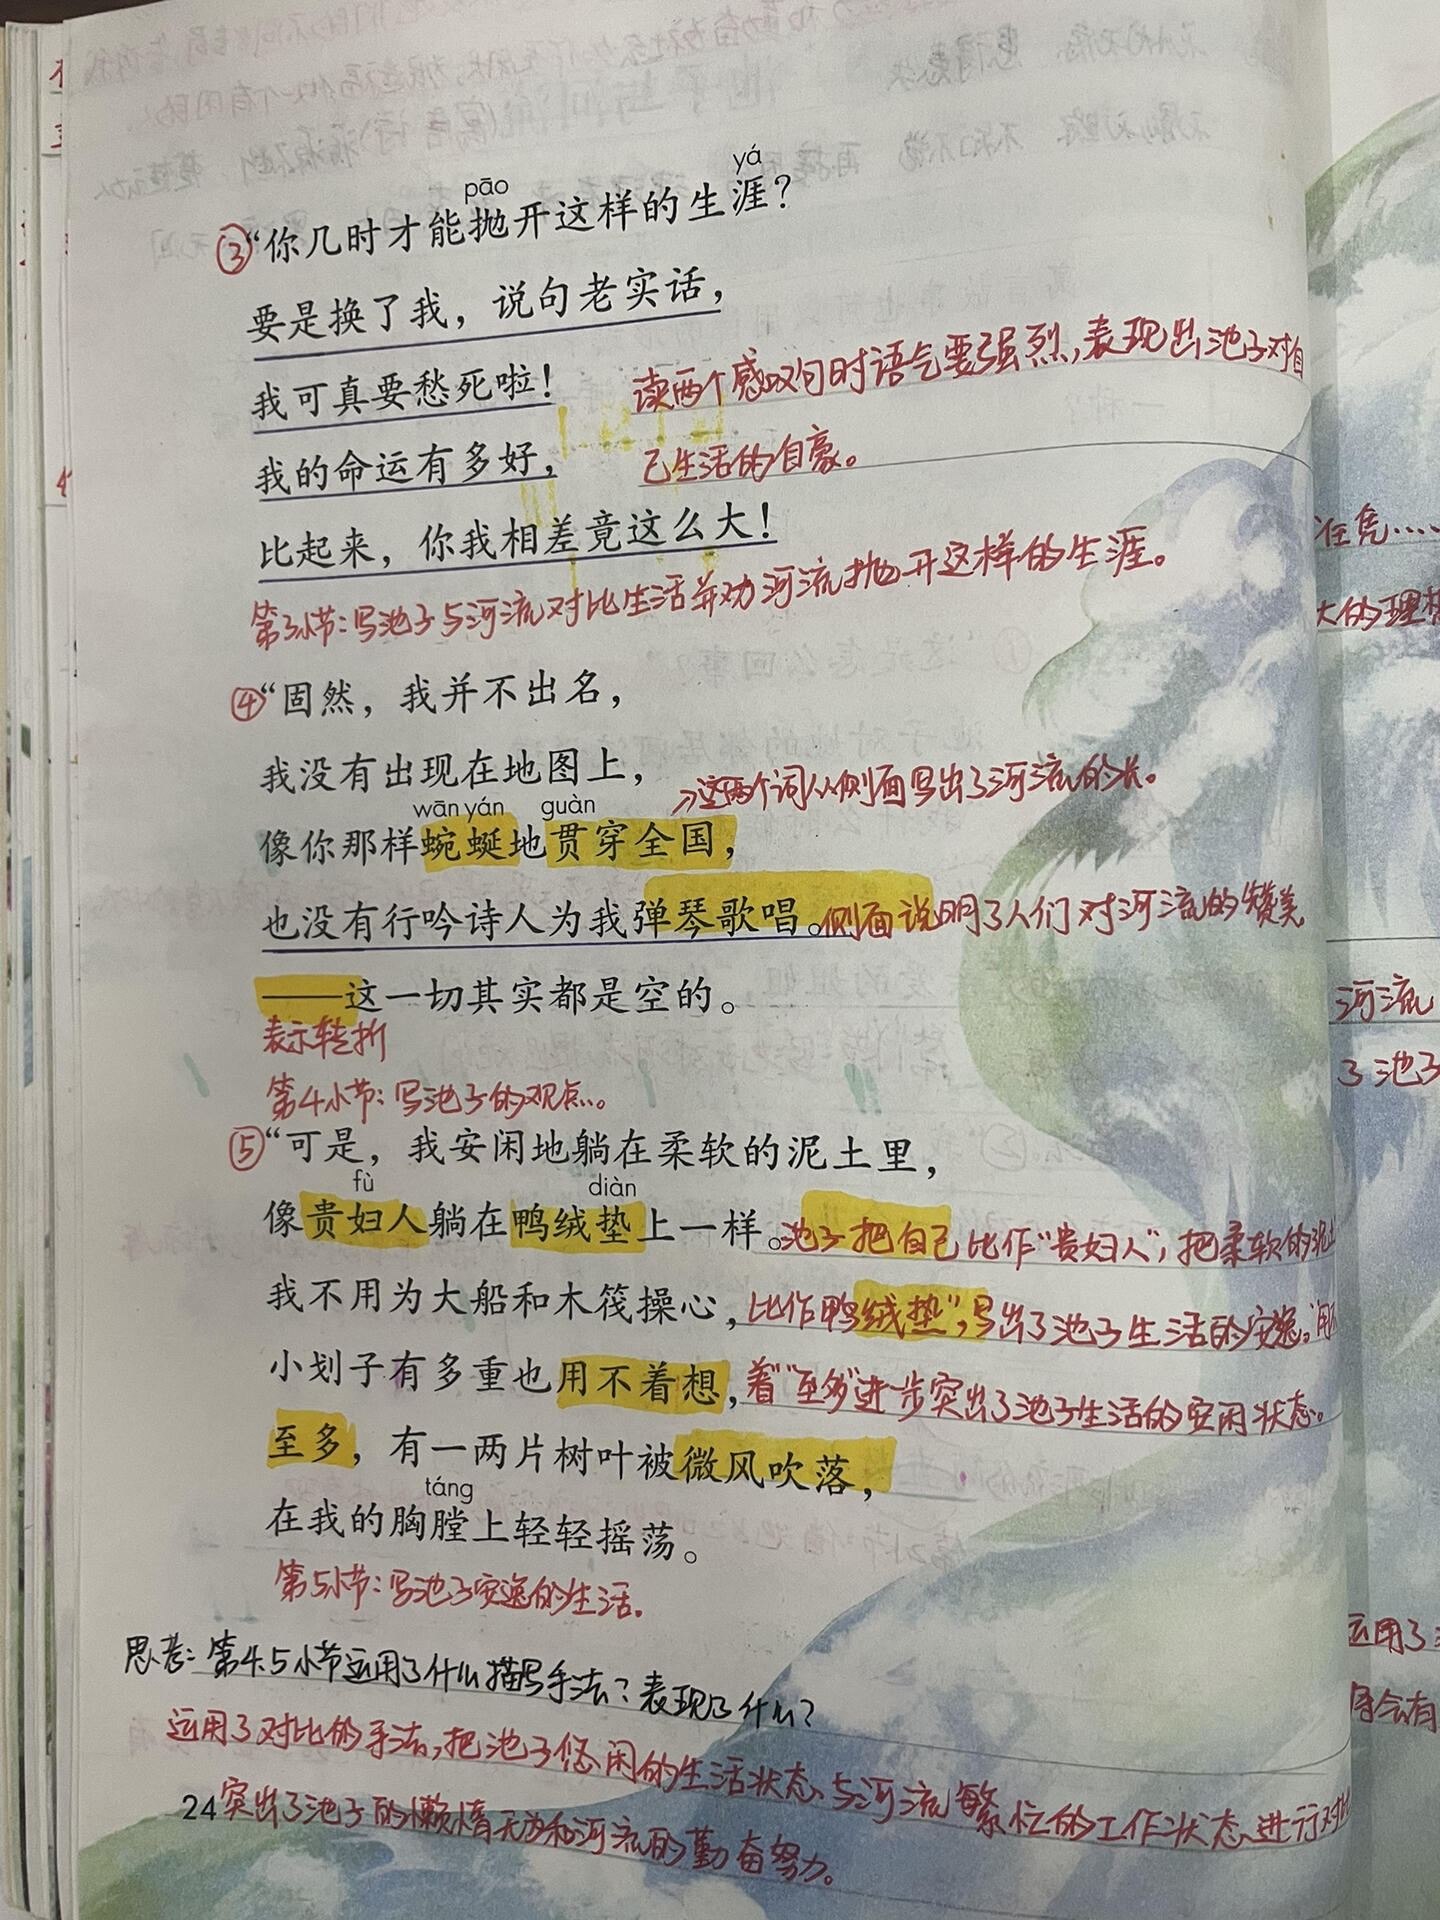 pāo yá
③“你几时才能抛开这样的生涯？
要是换了我，说句老实话，
我可真要愁死啦！
读两个感叹句时语气要强烈，表现出池子对自
我的命运有多好，
己生活的自豪。
比起来，你我相差竟这么大！
第3小节：写池子与河流对比生活并劝河流抛开这样的生涯。
④“固然，我并不出名，
我没有出现在地图上，
→这两个词从侧面写出了河流的长。
wān yán guàn
像你那样蜿蜒地贯穿全国，
也没有行吟诗人为我弹琴歌唱。侧面说明了人们对河流的赞美
——这一切其实都是空的。
表示转折
第4小节：写池子的观点。
⑤“可是，我安闲地躺在柔软的泥土里，
fù diàn
像贵妇人躺在鸭绒垫上一样。池子把自己比作“贵妇人”，把柔软的泥土
我不用为大船和木筏操心，比作鸭绒垫”，写出了池子生活的安逸。“用不
小划子有多重也用不着想，着”“至多”进一步突出了池子生活的安闲状态。
至多，有一两片树叶被微风吹落，
táng
在我的胸膛上轻轻摇荡。
第5小节：写池子安逸的生活。
思考：第4.5小节运用了什么描写手法？表现了什么？
运用了对比的手法，把池子悠闲的生活状态与河流繁忙的工作状态进行对比
24突出了池子的懒惰无为和河流的勤奋努力。
任凭……
大的理想
河流
了池子
运用了
会有